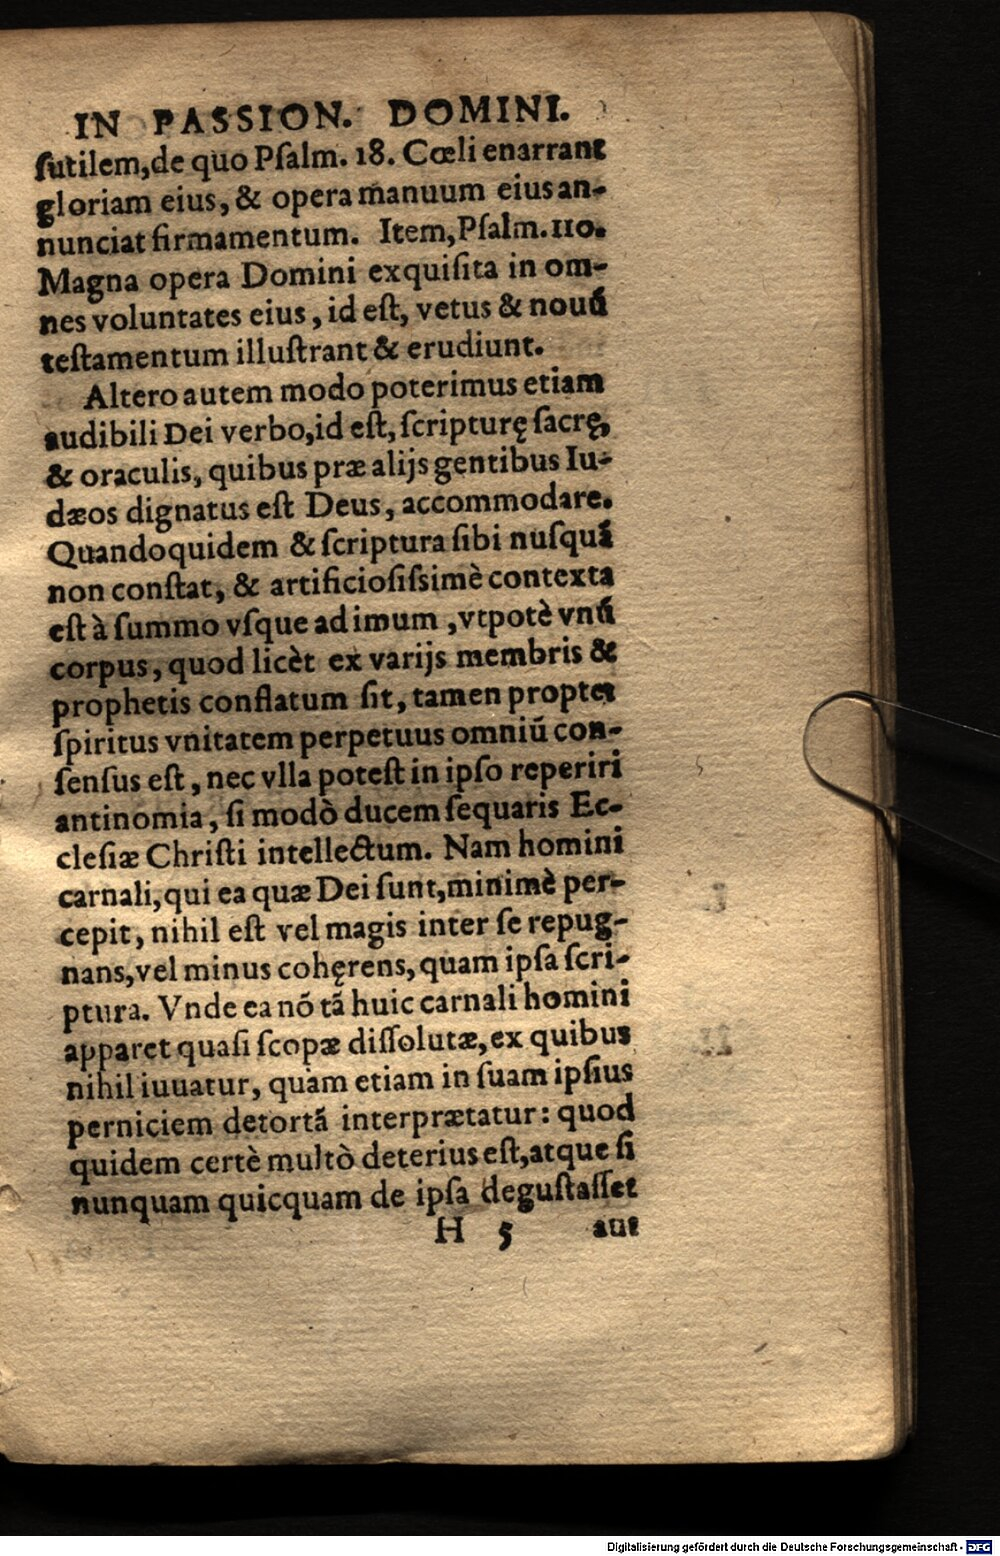 IN PASSION. DOMINI.
ſutilem,de quo Pſalm. 18. Cœli enarrant
gloriam eius, & opera manuum eius an-
nunciat firmamentum. Item,Pſalm.110.
Magna opera Domini exquiſita in om-
nes voluntates eius, id eſt, vetus & nouũ
teſtamentum illuſtrant & erudiunt.
Altero autem modo poterimus etiam
audibili Dei verbo,id eſt, ſcripturę ſacrę,
& oraculis, quibus præ alijs gentibus Iu-
dæos dignatus eſt Deus, accommodare.
Quandoquidem & ſcriptura ſibi nuſquã
non conſtat, & artificioſiſsimè contexta
eſt à ſummo vſque ad imum, vtpotè vnũ
corpus, quod licèt ex varijs membris &
prophetis conflatum ſit, tamen propter
ſpiritus vnitatem perpetuus omniũ con-
ſenſus eſt, nec vlla poteſt in ipſo reperiri
antinomia, ſi modò ducem ſequaris Ec-
cleſiæ Chriſti intellectum. Nam homini
carnali,qui ea quæ Dei ſunt,minimè per-
cepit, nihil eſt vel magis inter ſe repug-
nans,vel minus cohęrens, quam ipſa ſcri-
ptura. Vnde ea nõ tã huic carnali homini
apparet quaſi ſcopæ diſſolutæ, ex quibus
nihil iuuatur, quàm etiam in ſuam ipſius
perniciem detortã interprætatur: quod
quidem certè multò deterius eſt,atque ſi
nunquam quicquam de ipſa deguſtaſſet
H 5 aut
Digitalisierung gefördert durch die Deutsche Forschungsgemeinschaft - DFG